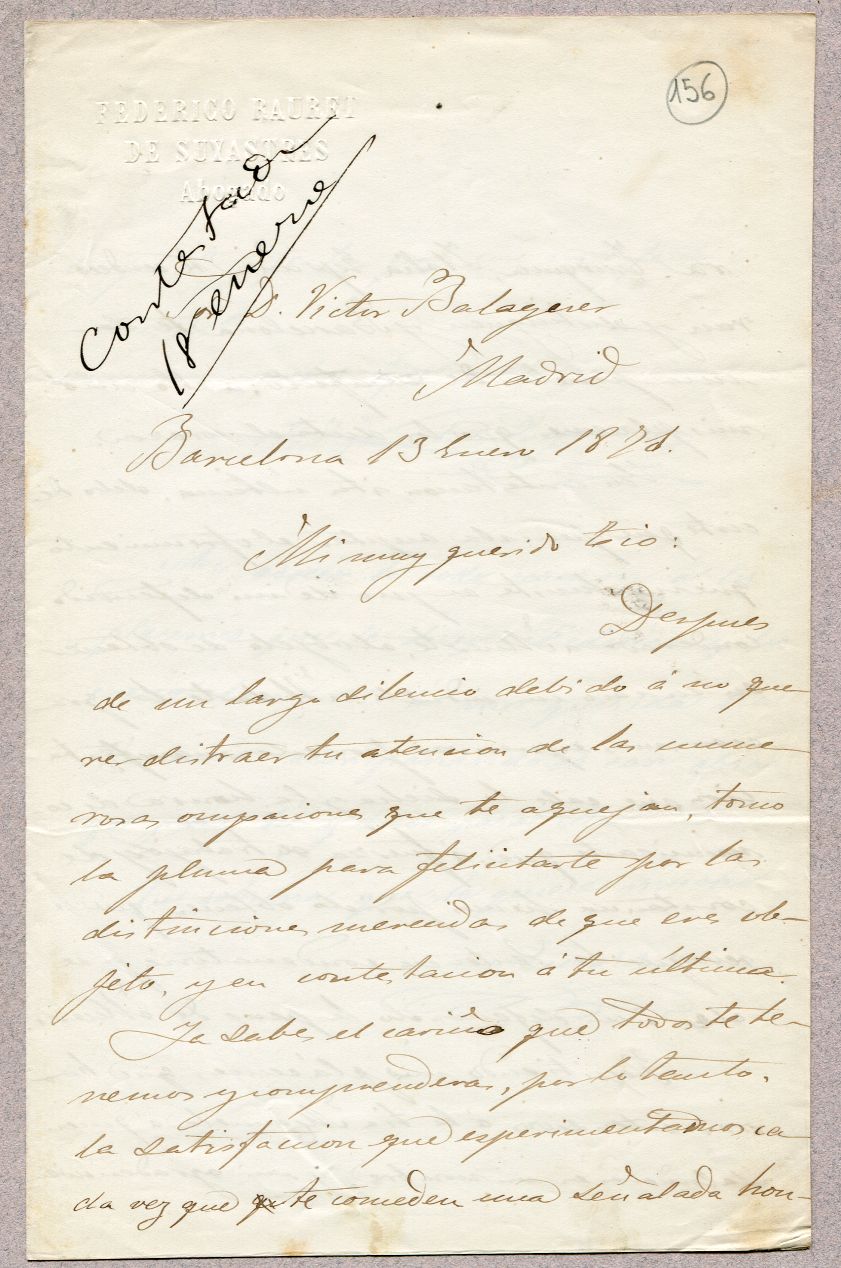 156
FEDERICO PAURET
DE SUYASTRES
Abogado
Contestada
18 enero
D. Victor Balaguer
Madrid
Barcelona 13 Enero 1871.
Mi muy querido tio:
Despues
de un largo silencio debido á no que-
rer distraer tu atencion de las nume-
rosas ocupaciones que te aquejan, tomo
la pluma para felicitarte por las
distinciones merecidas de que eres ob-
jeto, y en contestacion á tu última.
Ya sabes el cariño que todos te te-
nemos y comprenderas, por lo tanto,
la satisfaccion que esperimentamos ca-
da vez que te conceden una señalada hon-